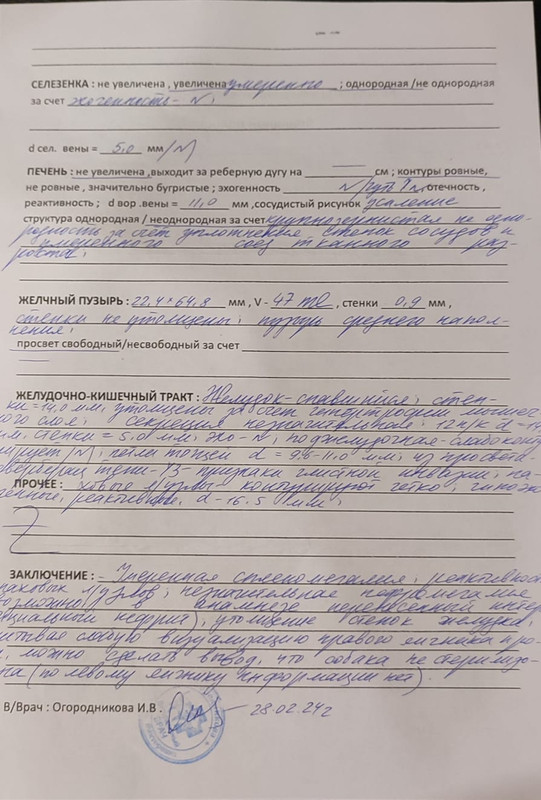 СЕЛЕЗЕНКА : не увеличена , увеличена умеренно ; однородная /не однородная
за счет эхогенность - N;
d сел. вены = 5,0 мм /N/
ПЕЧЕНЬ : не увеличена ,выходит за реберную дугу на см ; контуры ровные,
не ровные , значительно бугристые ; эхогенность N/ , отечность ,
реактивность ; d вор .вены = 11,0 мм ,сосудистый рисунок усиление
структура однородная / неоднородная за счет крупнозернистая не одно-
родность за счет уплотнения стенок сосудов и
умеренного соед. тканного раз-
роста;
ЖЕЛЧНЫЙ ПУЗЫРЬ : 22,4×64,8 мм , V - 47 ml , стенки 0,9 мм ,
стенки не утолщены; пузырь среднего напол-
нения;
просвет свободный/несвободный за счет
ЖЕЛУДОЧНО-КИШЕЧНЫЙ ТРАКТ : Желудок - спавшийся; стен-
ки = 14,0 мм; утолщены за счет гипертрофии мышеч
ного слоя; секреция незначительная; 12 п/к d ~
мм, стенки = 5,0 мм; эхо - N; поджелудочная - слабо конту
рирует /N/; петли тощей d = 9,6-11,0 мм; из просвета -
УЗ - признаки глистной инвазии; па-
ПРОЧЕЕ : ховые л/узлы - контурируют четко, гипоэхо
генные, реактивные, d - 16.5 мм;
ЗАКЛЮЧЕНИЕ : - Умеренная спленомегалия; реактивнос
паховых л/узлов; незначительная
возможно в анамнезе перенесенный интер
стициальный нефрит); утолщение стенок желудка;
учитывая слабую визуализацию правого яичника
можно сделать вывод, что собака не стерилизо
(по левому яичнику информации нет).
В/Врач : Огородникова И.В . - 28.02.24 г